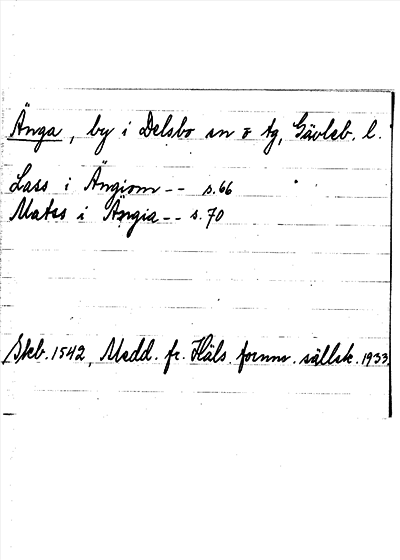 Änga, by i Delsbo sn o tg, Gävleb. l.
Lass i Ängiom -- s.66
Matss i Ängia -- s.70
Skb. 1542, Medd. fr. Häls. fornm. sällsk. 1933